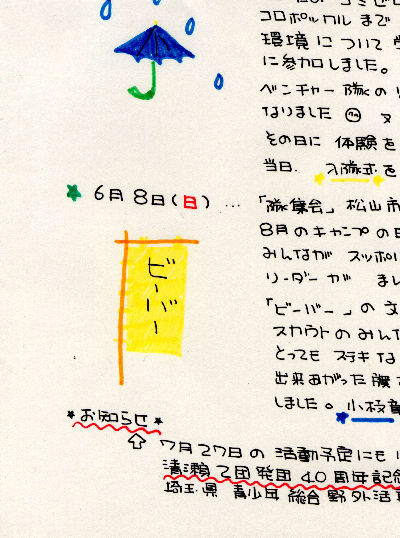 コロポックル まで
環境 に ついて
に参加しました。
ベンチャー 隊の
なりました
その日に 体験を
当日. 入隊式を
6月 8日(日) ...「隊集会」 松山市
8月のキャンプの
みんなが スッポリ
リーダーが まし
ビーバー
「ビーバー」の
スカウトのみん
とっても ステキな
出来あがった 旗
しました。 小枝章
*お知らせ*
7月27日の 活動予定にも
清瀬2団発団40周年記念
埼玉県 青少年 総合 野外活